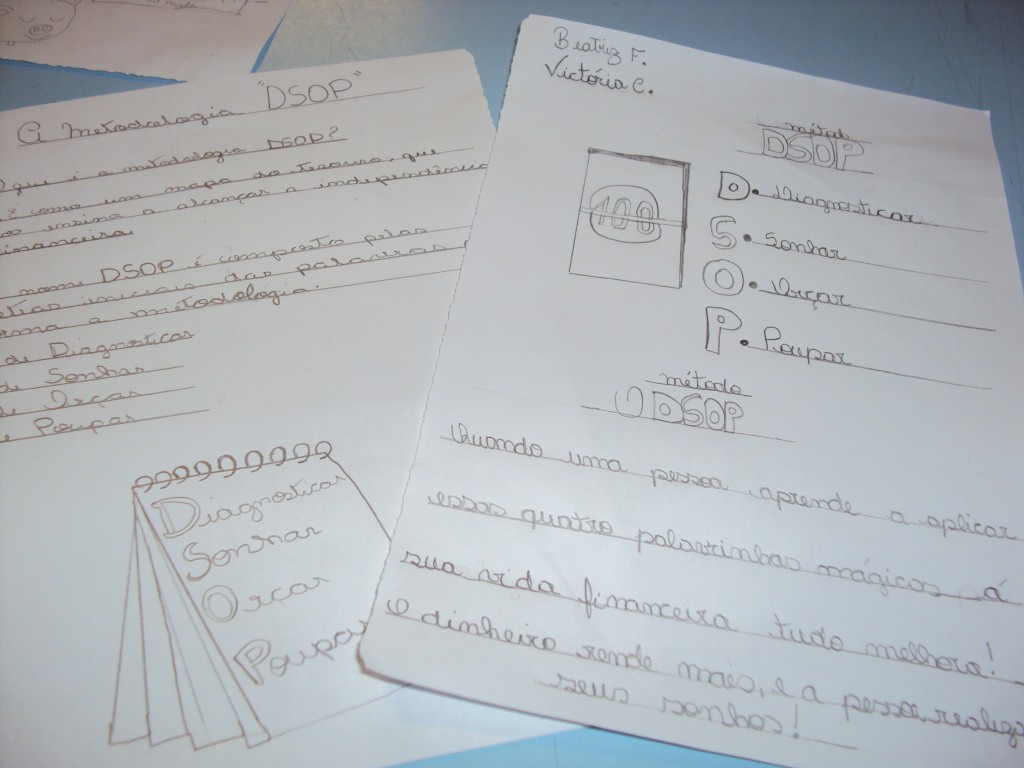 A metodologia "DSOP"
que é a metodologia DSOP?
é como um mapa do tesouro, que
ensina a alcançar a independência
financeira.
nome DSOP é composto pelas
iniciais das palavras
a metodologia.
de Diagnosticar
de Sonhar
de Orçar
e Poupar
Diagnosticar
Sonhar
Orçar
Poupar
Beatriz F.
Victória C.
métod
DSOP
100
D. Diagnosticar
S. Sonhar
O. Orçar
P. Poupar
método
O DSOP
Quando uma pessoa aprende a aplicar
essas quatro palavrinhas mágicas á
sua vida financeira tudo melhora!
O dinheiro rende mais, e a pessoa realiza
seus sonhos!